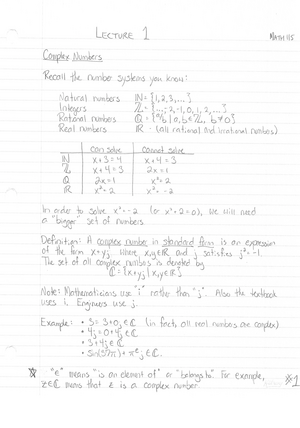 LECTURE 1
MATH 115
Complex Numbers
Recall the number systems you know:
Natural numbers ℕ = {1,2,3,...}
Integers ℤ = {...,-2,-1,0,1,2,...}
Rational numbers ℚ = {a/b | a,b∈ℤ, b≠0}
Real numbers ℝ - (all rational and irrational numbers)
can solve cannot solve
ℕ x+3=4 x+4=3
ℤ x+4=3 2x=1
ℚ 2x=1 x²=2
ℝ x²=2 x²=-2
In order to solve x²=-2 (or x²+2=0), we will need
a "bigger" set of numbers.
Definition: A complex number in standard form is an expression
of the form x+yj where x,y∈ℝ and j satisfies j²=-1.
The set of all complex numbers is denoted by
ℂ={x+yj | x,y∈ℝ}
Note: Mathematicians use "i" rather than "j". Also the textbook
uses i. Engineers use j.
Example: • 3=3+0j∈ℂ (in fact, all real numbers are complex)
• 4j=0+4j∈ℂ
• 3+4j∈ℂ
"∈" means "is an element of" or "belongs to". For example,
z∈ℂ means that z is a complex number.
#1